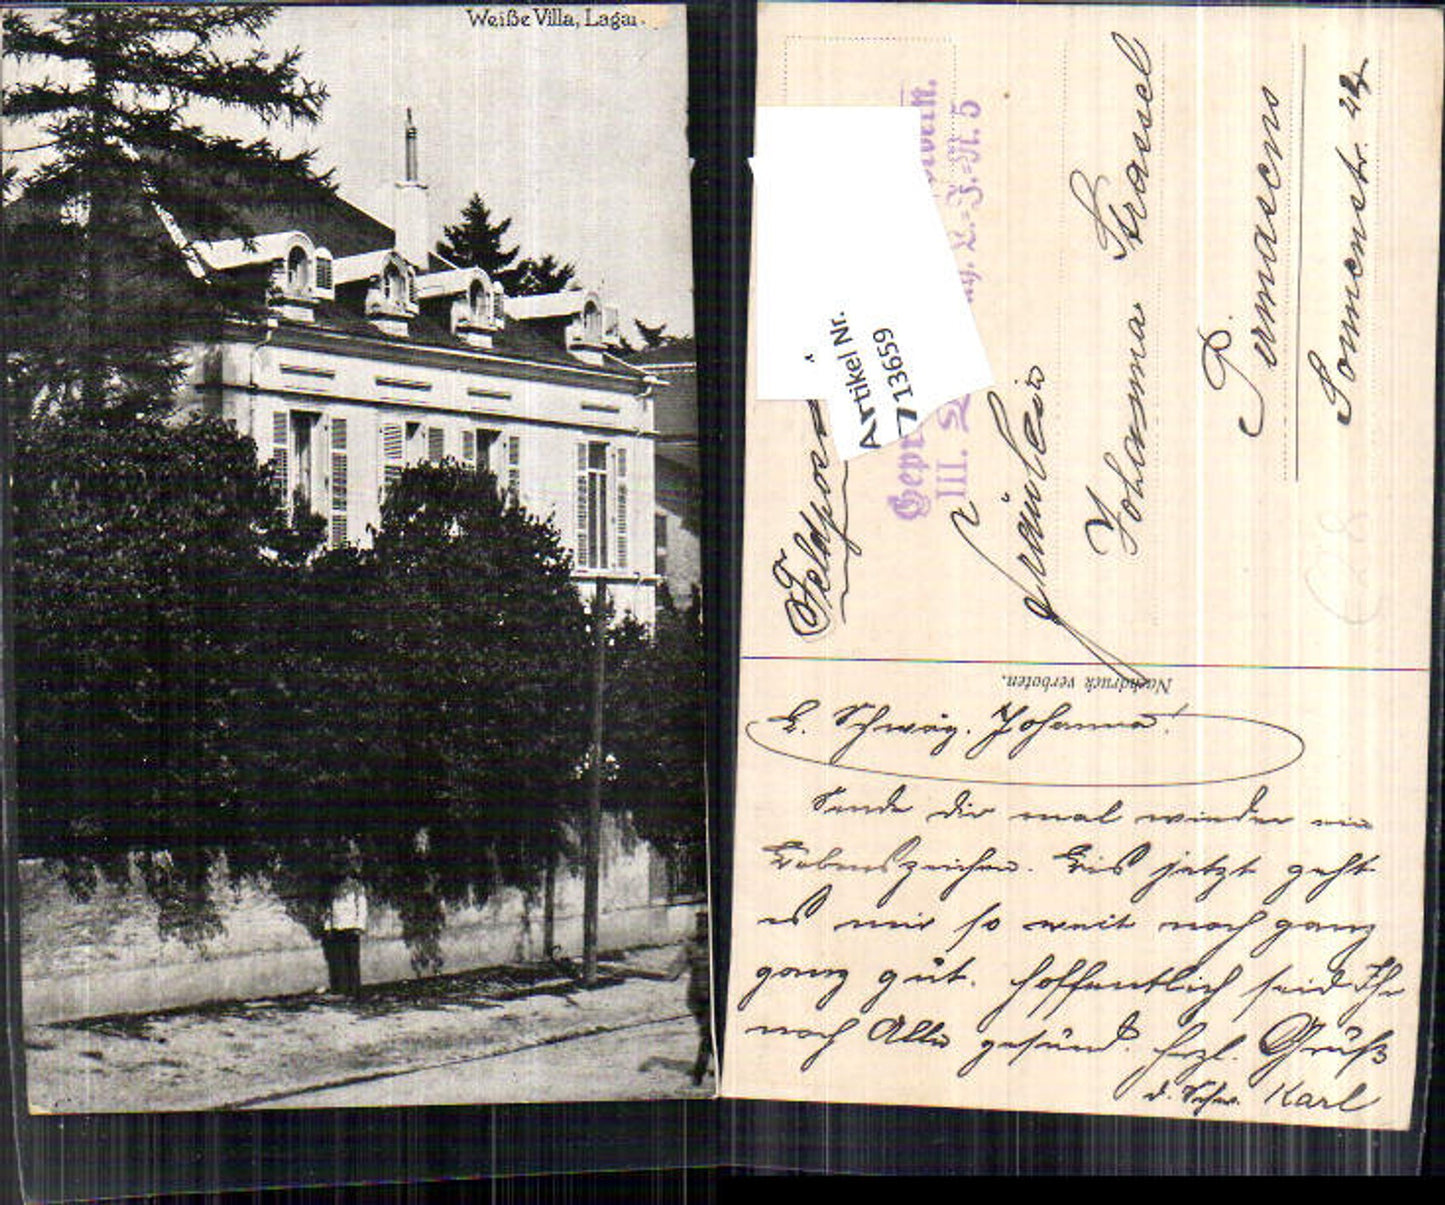 Weiße Villa, Lagar.
Feldpost
Artikel Nr.
713659
Gepr
III. L.=J.=R. 5
Fräulein
Johanna Strassel
Pirmasens
Sommerstr. 42
Nachdruck verboten.
L. Schwäg. Johanna!
Sende dir mal wieder ein
Lebenszeichen. Bis jetzt geht
es mir so weit noch ganz
ganz gut. Hoffentlich seid Ihr
noch Alle gesund. Hrzl. Grüß
d. Schw. Karl